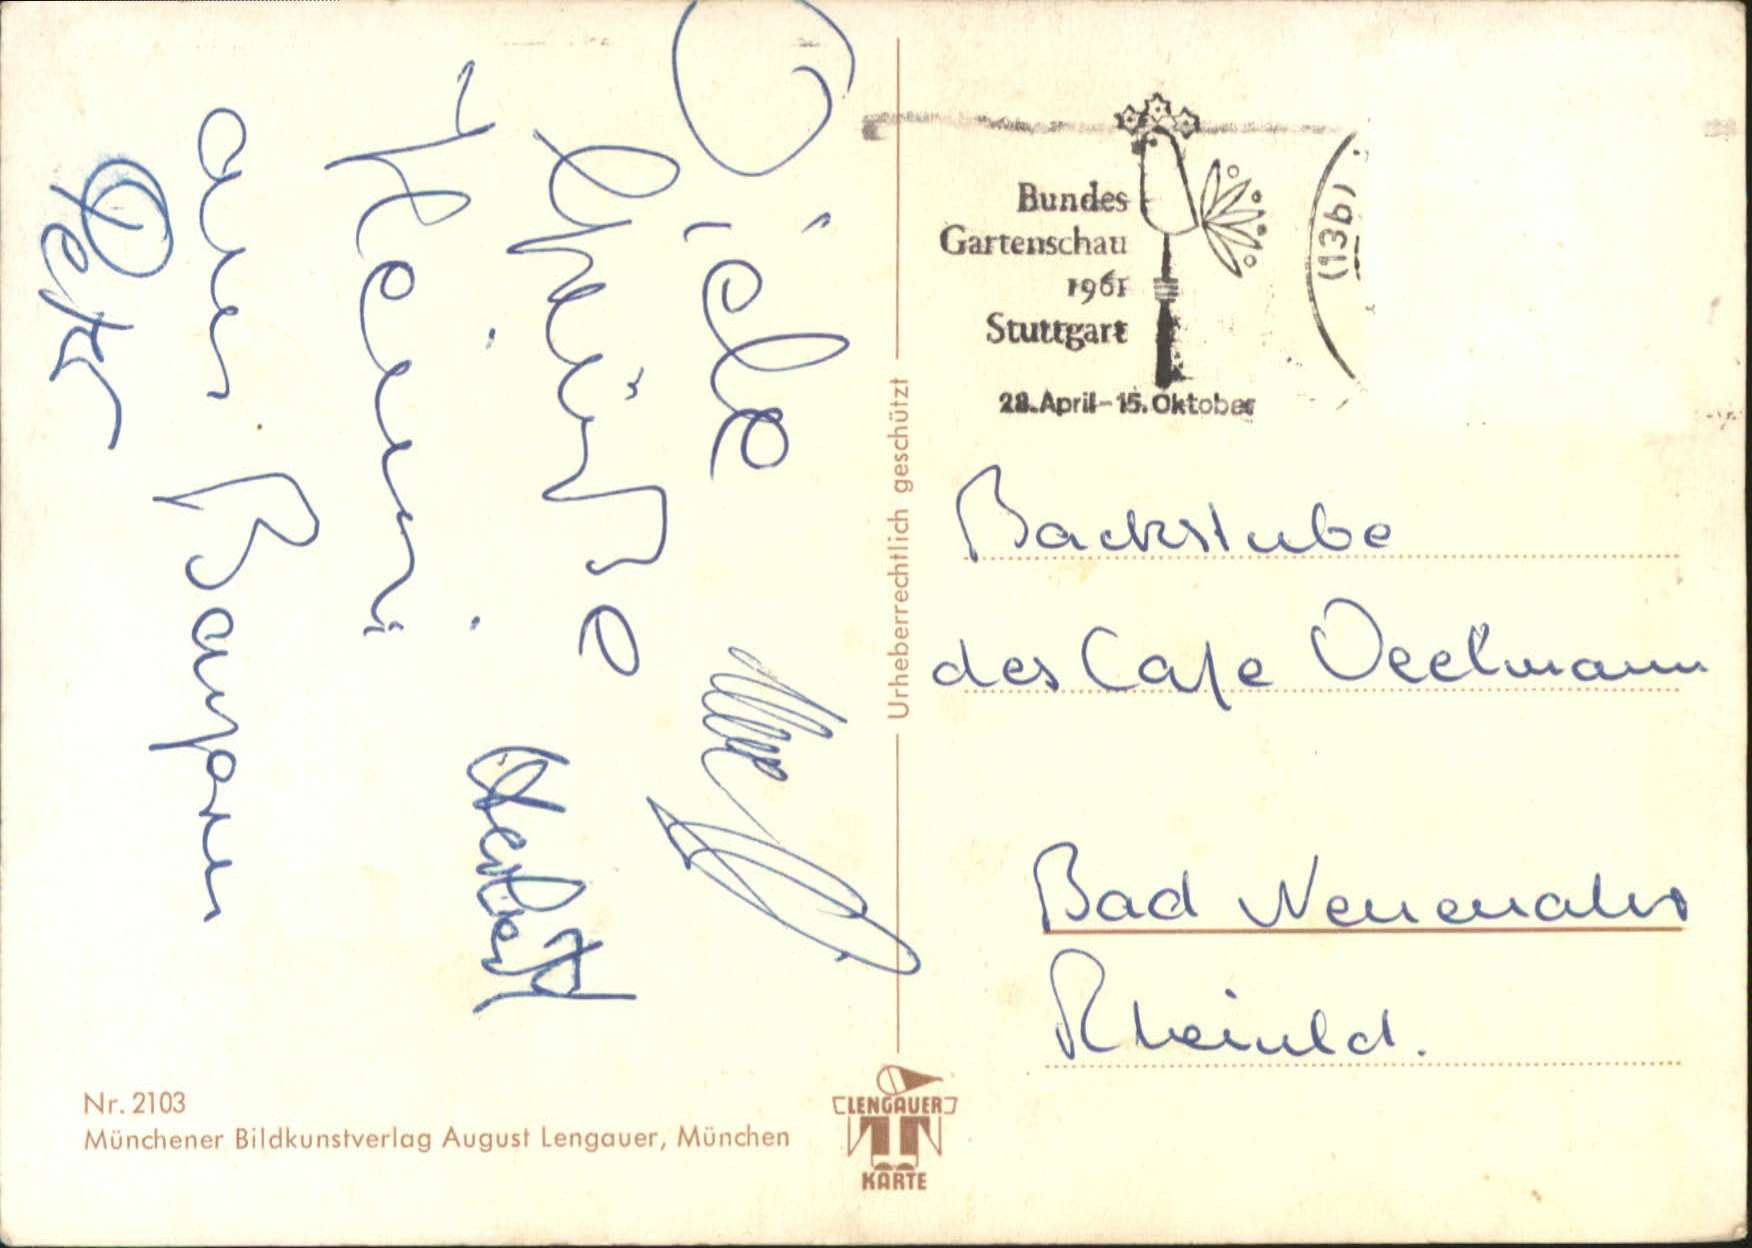 Viele
Grüße
Heini
aus Bayern
Peter
Herbert
Bundes
Gartenschau
1961
Stuttgart
28. April - 15. Oktober
(13b)
Urheberrechtlich geschützt
Backstube
des Cafe Oeelmann
Bad Neuenahr
Rheinld.
Nr. 2103
Münchener Bildkunstverlag August Lengauer, München
LENGAUER
KARTE